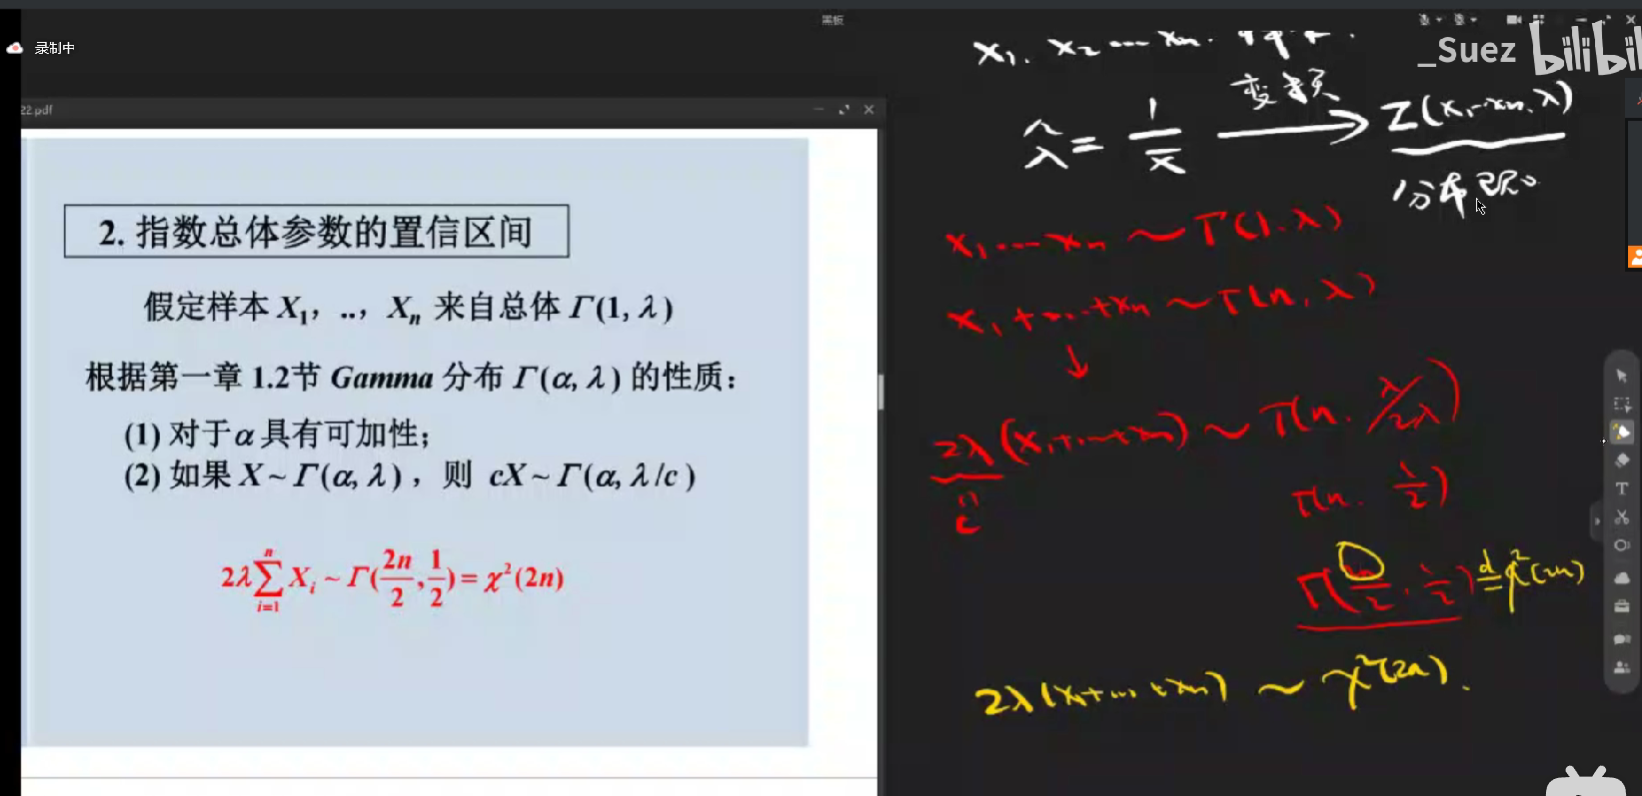 黑板
录制中
_Suez bilibili
22.pdf
2. 指数总体参数的置信区间
假定样本 X₁, .., Xₙ 来自总体 Γ(1, λ)
根据第一章 1.2节 Gamma 分布 Γ(α, λ) 的性质:
(1) 对于α具有可加性;
(2) 如果 X ~ Γ(α, λ) , 则 cX ~ Γ(α, λ/c)
2λ∑ᵢ₌₁ⁿ Xᵢ ~ Γ(2n/2, 1/2) = χ²(2n)
x₁. x₂ ... xₙ.
λ̂ = 1/x̄ 变换 → Z(x₁...xₙ, λ)
分布已知
x₁ ... xₙ ~ Γ(1, λ)
x₁ + ... + xₙ ~ Γ(n, λ)
↓
2λ(x₁ + ... + xₙ) ~ Γ(n, λ/2λ)
"
c
Γ(n, 1/2)
Γ(2n/2, 1/2) d= χ²(2n)
2λ(x₁ + ... + xₙ) ~ χ²(2n).
T